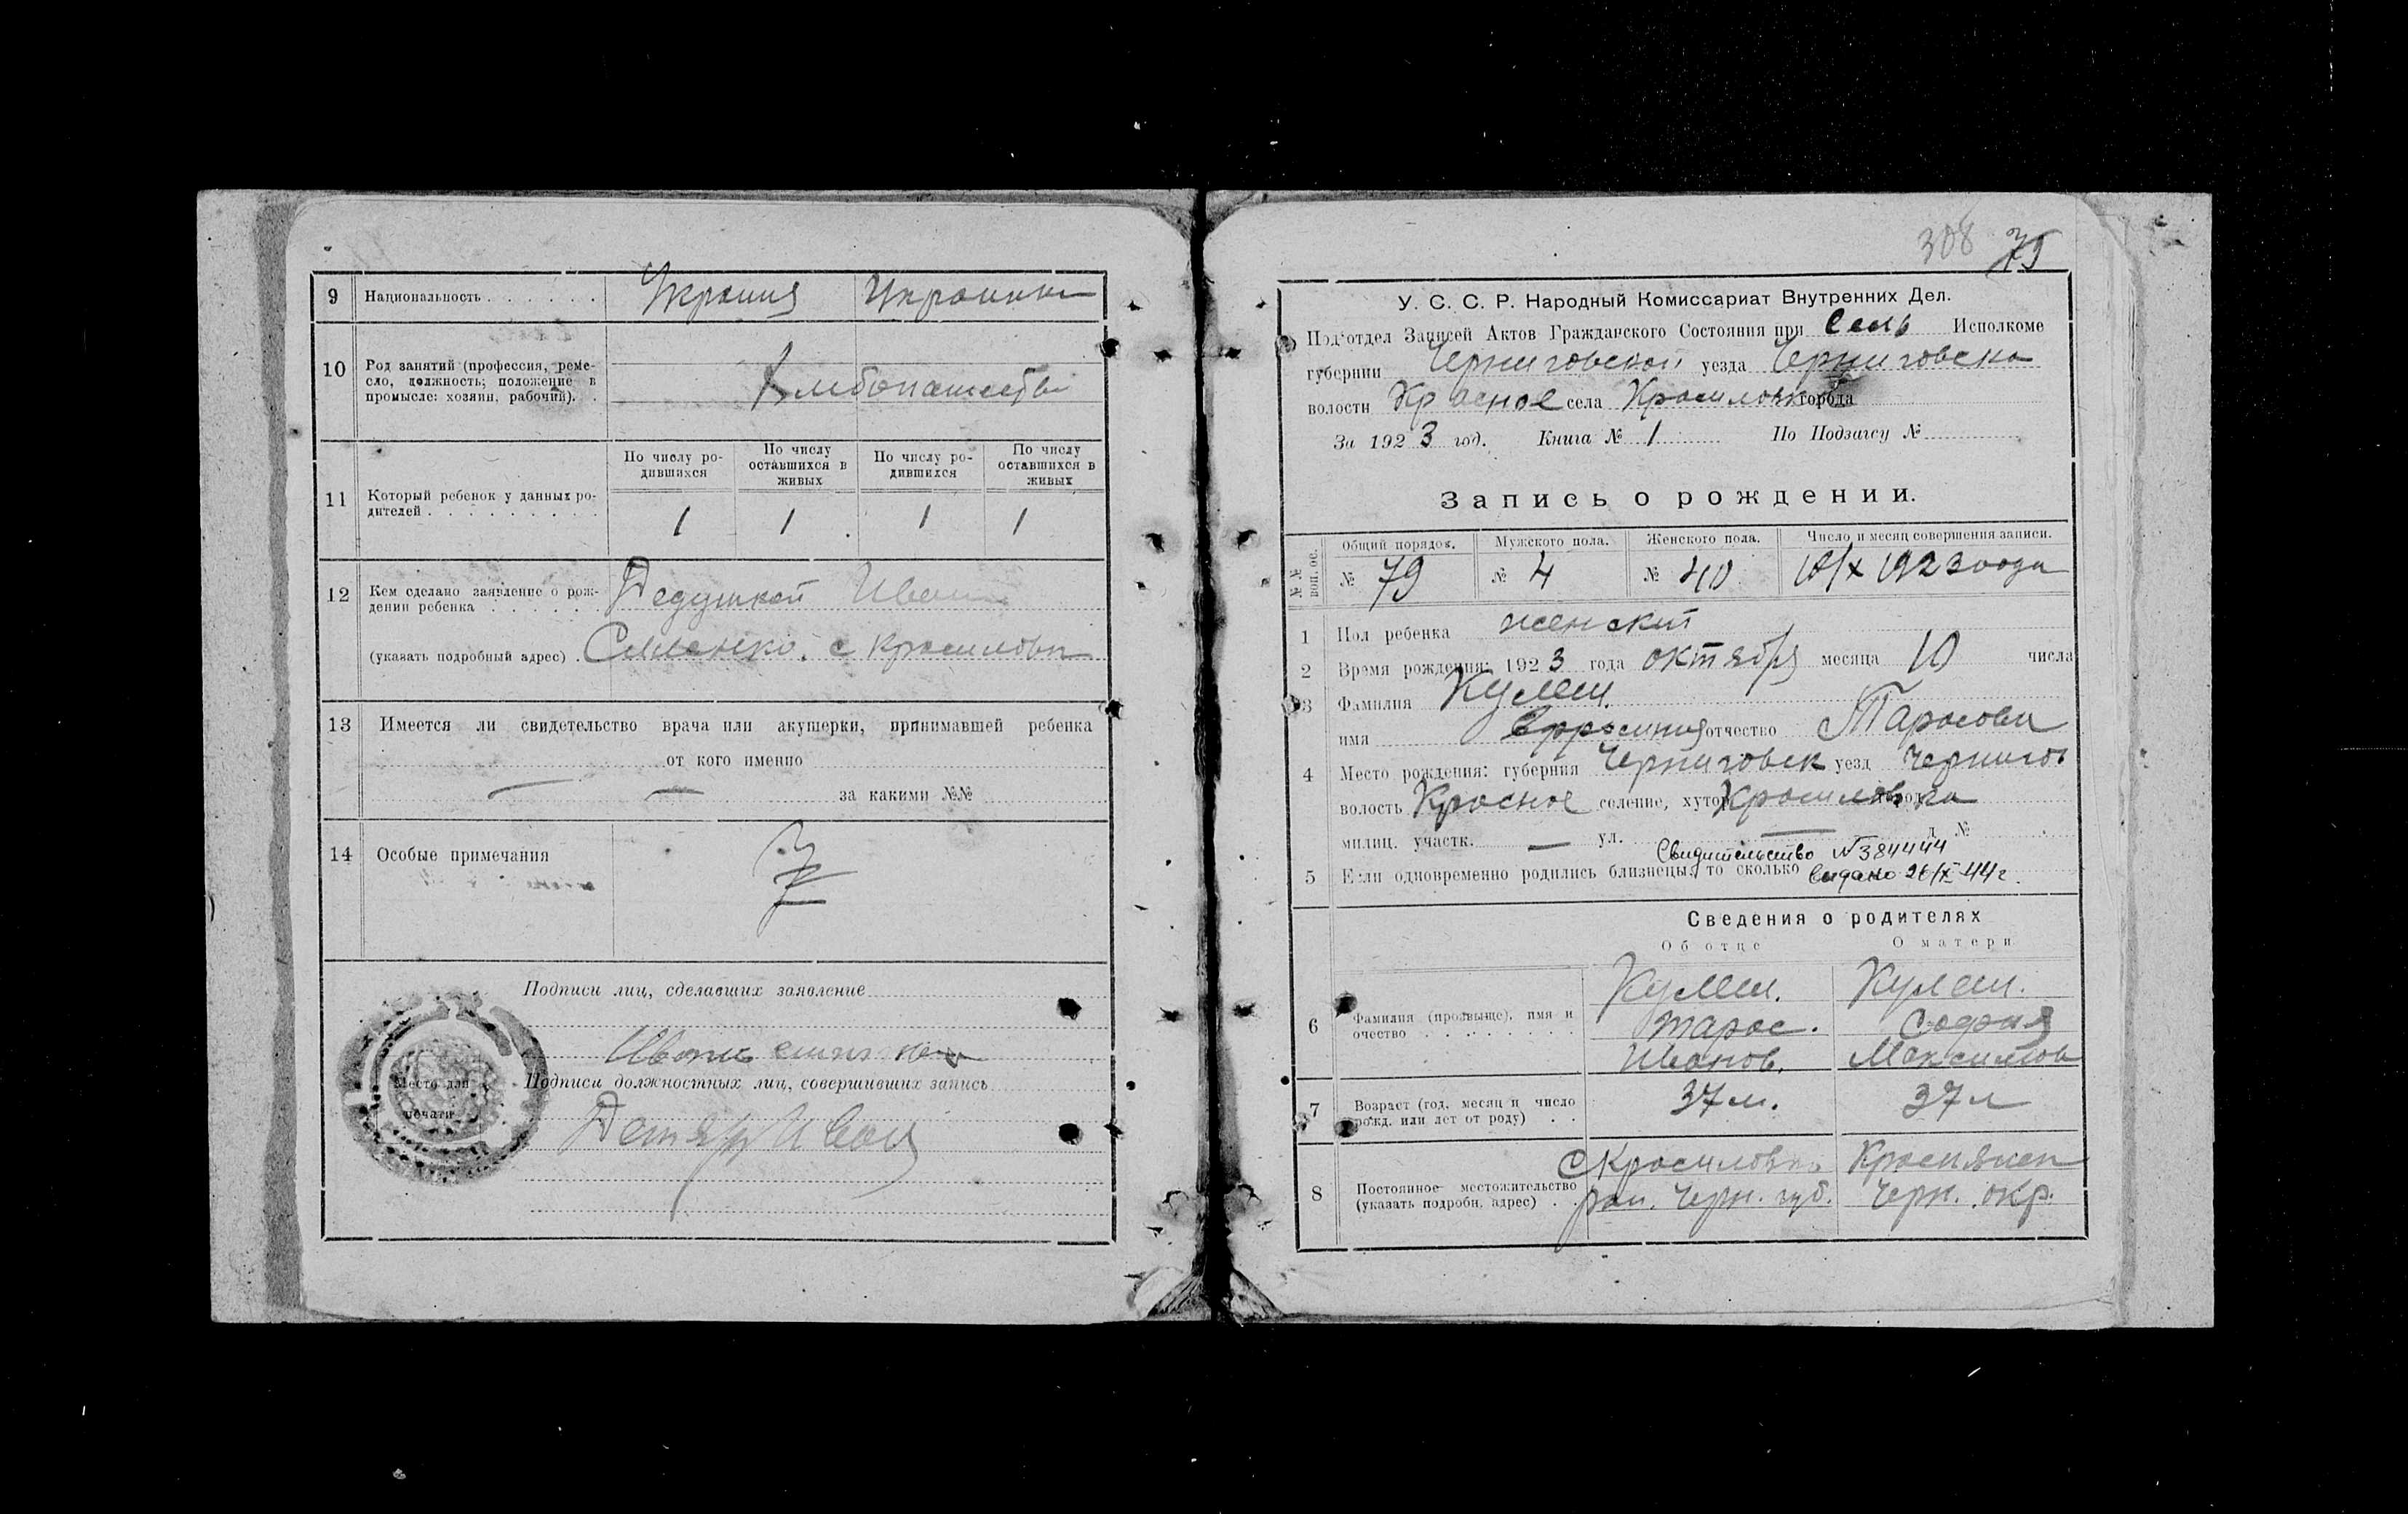 9 Национальность . . . . . . Украина Украинка
10 Род занятий (профессия, реме-
сло, должность; положение в
промысле: хозяин, рабочий). .
Хлебопашество
11 Который ребенок у данных ро-
дителей . . . . . . . . .
По числу ро-
дившихся
По числу
оставшихся в
живых
По числу ро-
дившихся
По числу
оставшихся в
живых
1 1 1 1
12 Кем сделано заявление о рож-
дении ребенка . . . . . . Дедушкой Иван
(указать подробный адрес) . с Красиловки
13 Имеется ли свидетельство врача или акушерки, принимавшей ребенка
от кого именно
— — за какими №№
14 Особые примечания
Подписи лиц, сделавших заявление
Иван
Место для
печати
Подписи должностных лиц, совершивших запись
Иван
308 79
У. С. С. Р. Народный Комиссариат Внутренних Дел.
Под'отдел Записей Актов Гражданского Состояния при Сель Исполкоме
губернии Черниговской уезда Черниговско
волости Красное села Красиловка города
За 1923 год. Книга № 1 По Подзагсу №
Запись о рождении.
№№ воп. ос.
Общий порядок. Мужского пола. Женского пола. Число и месяц совершения записи.
№ 79 № 4 № 40 10/X 1923 года
1 Пол ребенка женский
2 Время рождения: 1923 года октября месяца 10 числа
3 Фамилия Кулеш.
имя Ефросиния отчество Тарасови
4 Место рождения: губерния Черниговск уезд Чернигов
волость Красное селение, хутор Красиловка город
милиц. участк. — ул. — д. №
Свидительство №384444
5 Если одновременно родились близнецы, то сколько
выдано 26/X 44 г.
Сведения о родителях
Об отце О матери
6 Фамилия (прозвыще), имя и
очество . . . . . . . . .
Кулеш. Кулеш.
Тарас. София
Иванов. Максимов
7 Возраст (год, месяц и число
рожд. или лет от роду) . . 37 л. 37 л
8 Постоянное местожительство
(указать подробн. адрес) . .
с Красиловка Краснянск
рай. Черн. губ. Черн. окр.